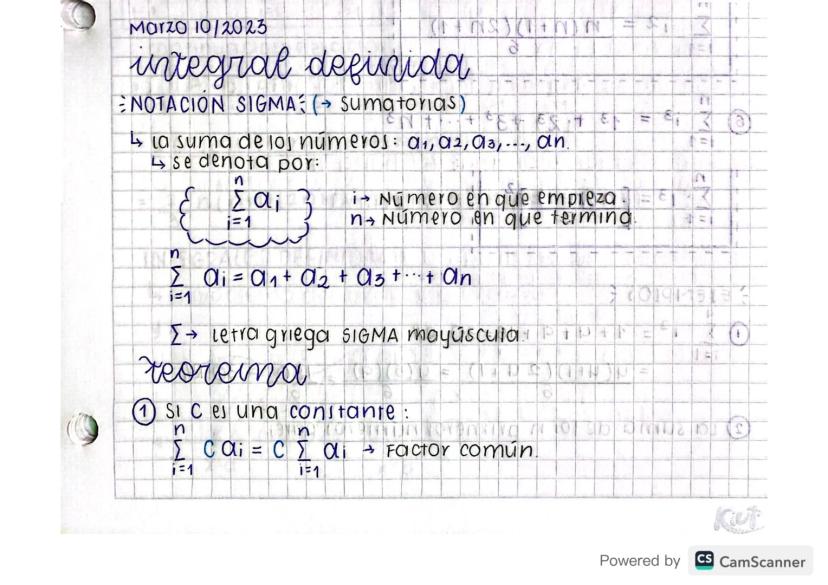 Marzo 10/2023
integral definida
NOTACIÓN SIGMA: (→ sumatorias)
↳ La suma de los números: a₁, a₂, a₃, ..., aₙ.
↳ se denota por:
n
Σ aᵢ
i=1
i → Número en que empieza.
n → Número en que termina.
n
Σ aᵢ = a₁ + a₂ + a₃ + ... + aₙ
i=1
Σ → letra griega SIGMA mayúscula.
teorema
① Si C es una constante:
n n
Σ C aᵢ = C Σ aᵢ → Factor común.
i=1 i=1
Powered by CS CamScanner